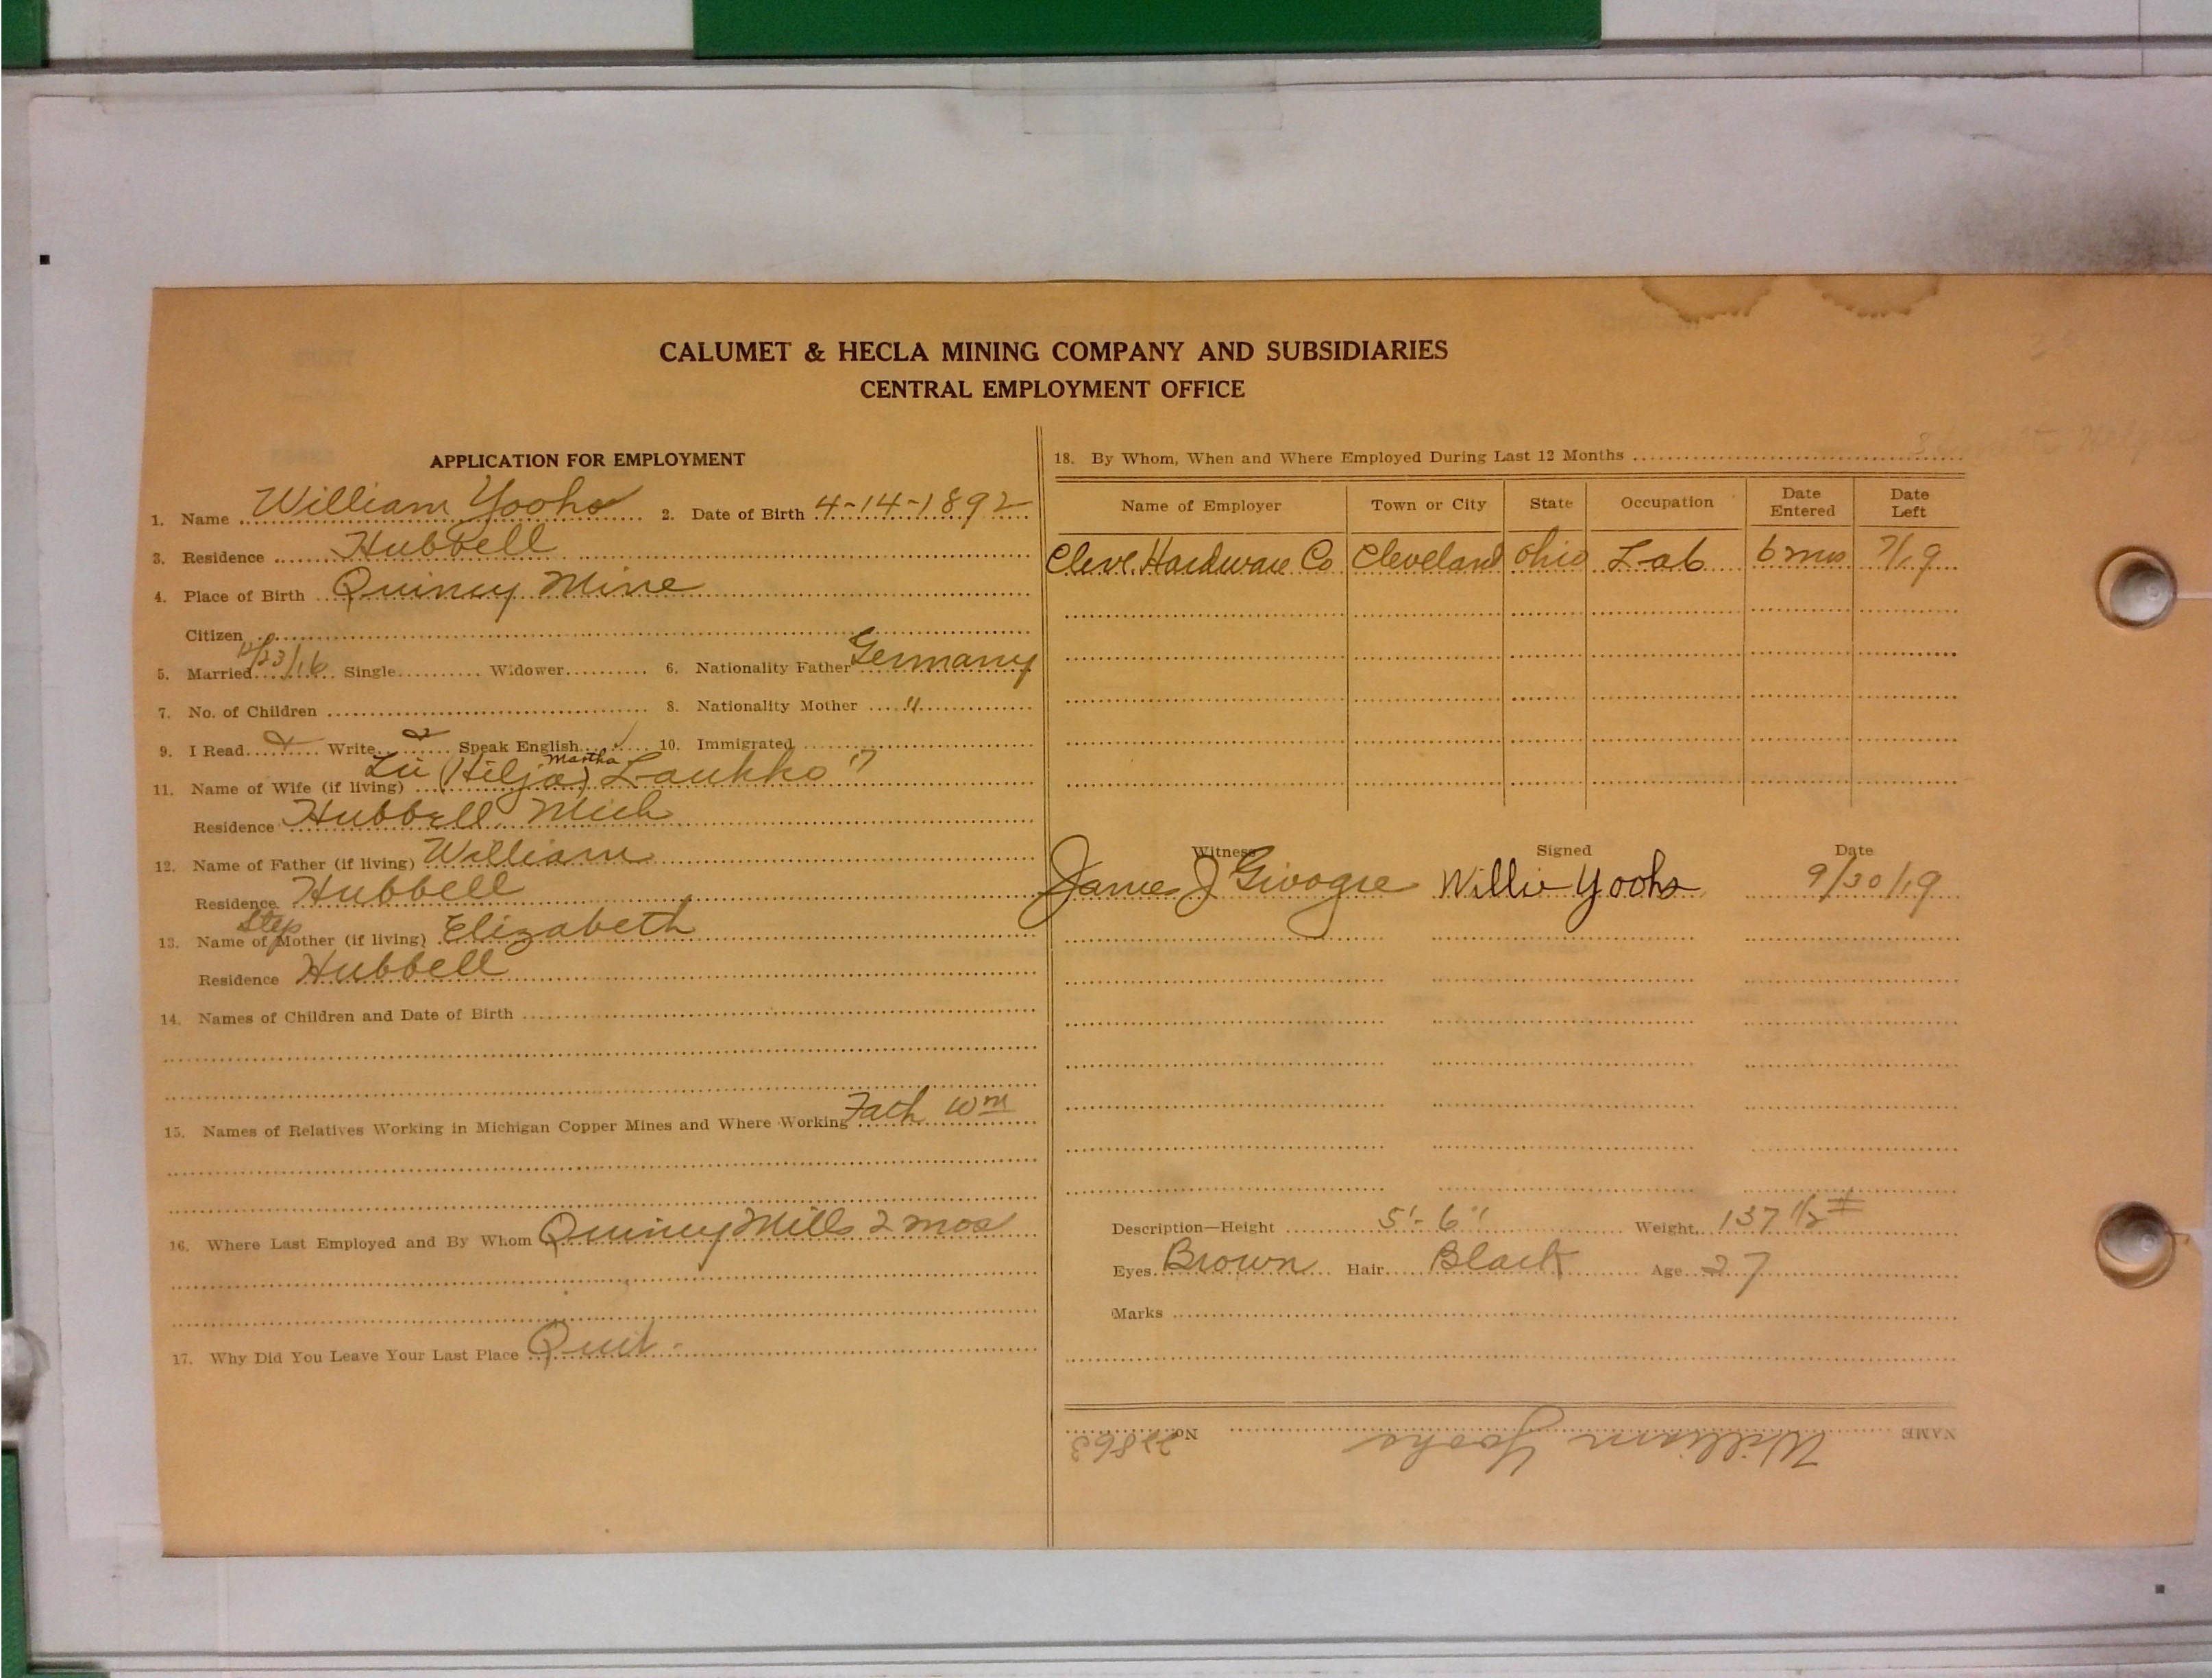 CALUMET & HECLA MINING COMPANY AND SUBSIDIARIES
CENTRAL EMPLOYMENT OFFICE
APPLICATION FOR EMPLOYMENT
1. Name William Yoohs 2. Date of Birth 4-14-1892
3. Residence Hubbell
4. Place of Birth Quincy Mine
Citizen
5. Married 12/23/16 Single Widower 6. Nationality Father Germany
7. No. of Children 8. Nationality Mother "
9. I Read Write Speak English ✓ 10. Immigrated
Martha
11. Name of Wife (if living) (Hilja) Laukko
Residence Hubbell Mich
12. Name of Father (if living) William
Residence Hubbell
Step
13. Name of Mother (if living) Elizabeth
Residence Hubbell
14. Names of Children and Date of Birth
15. Names of Relatives Working in Michigan Copper Mines and Where Working Fath Wm
16. Where Last Employed and By Whom Quincy Mills 2 mos
17. Why Did You Leave Your Last Place Quit
18. By Whom, When and Where Employed During Last 12 Months
Name of Employer Town or City State Occupation Date Entered Date Left
Cleve. Hardware Co Cleveland Ohio Lab 6 mos 7/19
Witness Signed Date
James J Willie Yoohs 9/30/19
Description—Height 5'-6" Weight 137 1/2 #
Eyes Brown Hair Black Age 27
Marks
NAME William Yoohs No.